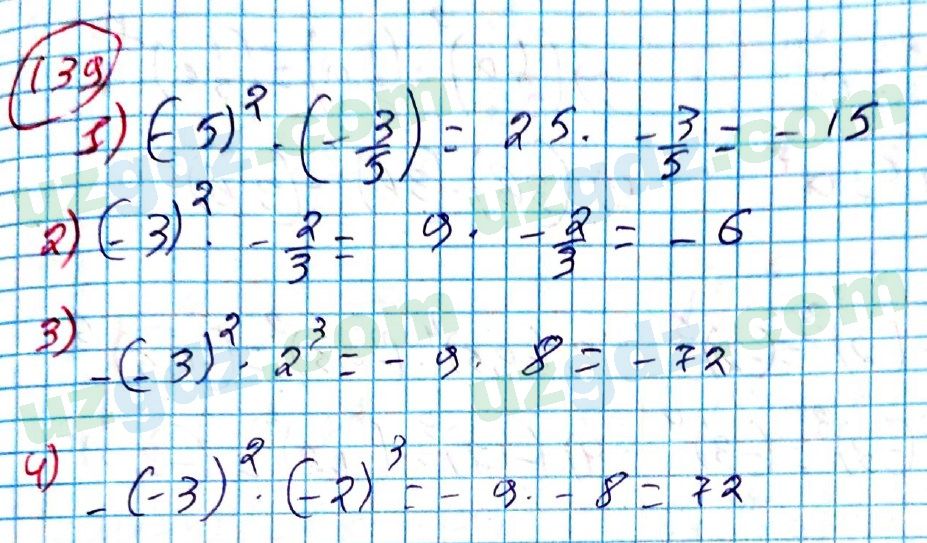 139
1) (-5)² · (-3/5) = 25 · -3/5 = -15
2) (-3)² · -2/3 = 9 · -2/3 = -6
3) -(-3)² · 2³ = -9 · 8 = -72
4) -(-3)² · (-2)³ = -9 · -8 = 72
uzgdz.com
uzgdz.com
uzgdz.com
uzgdz.com